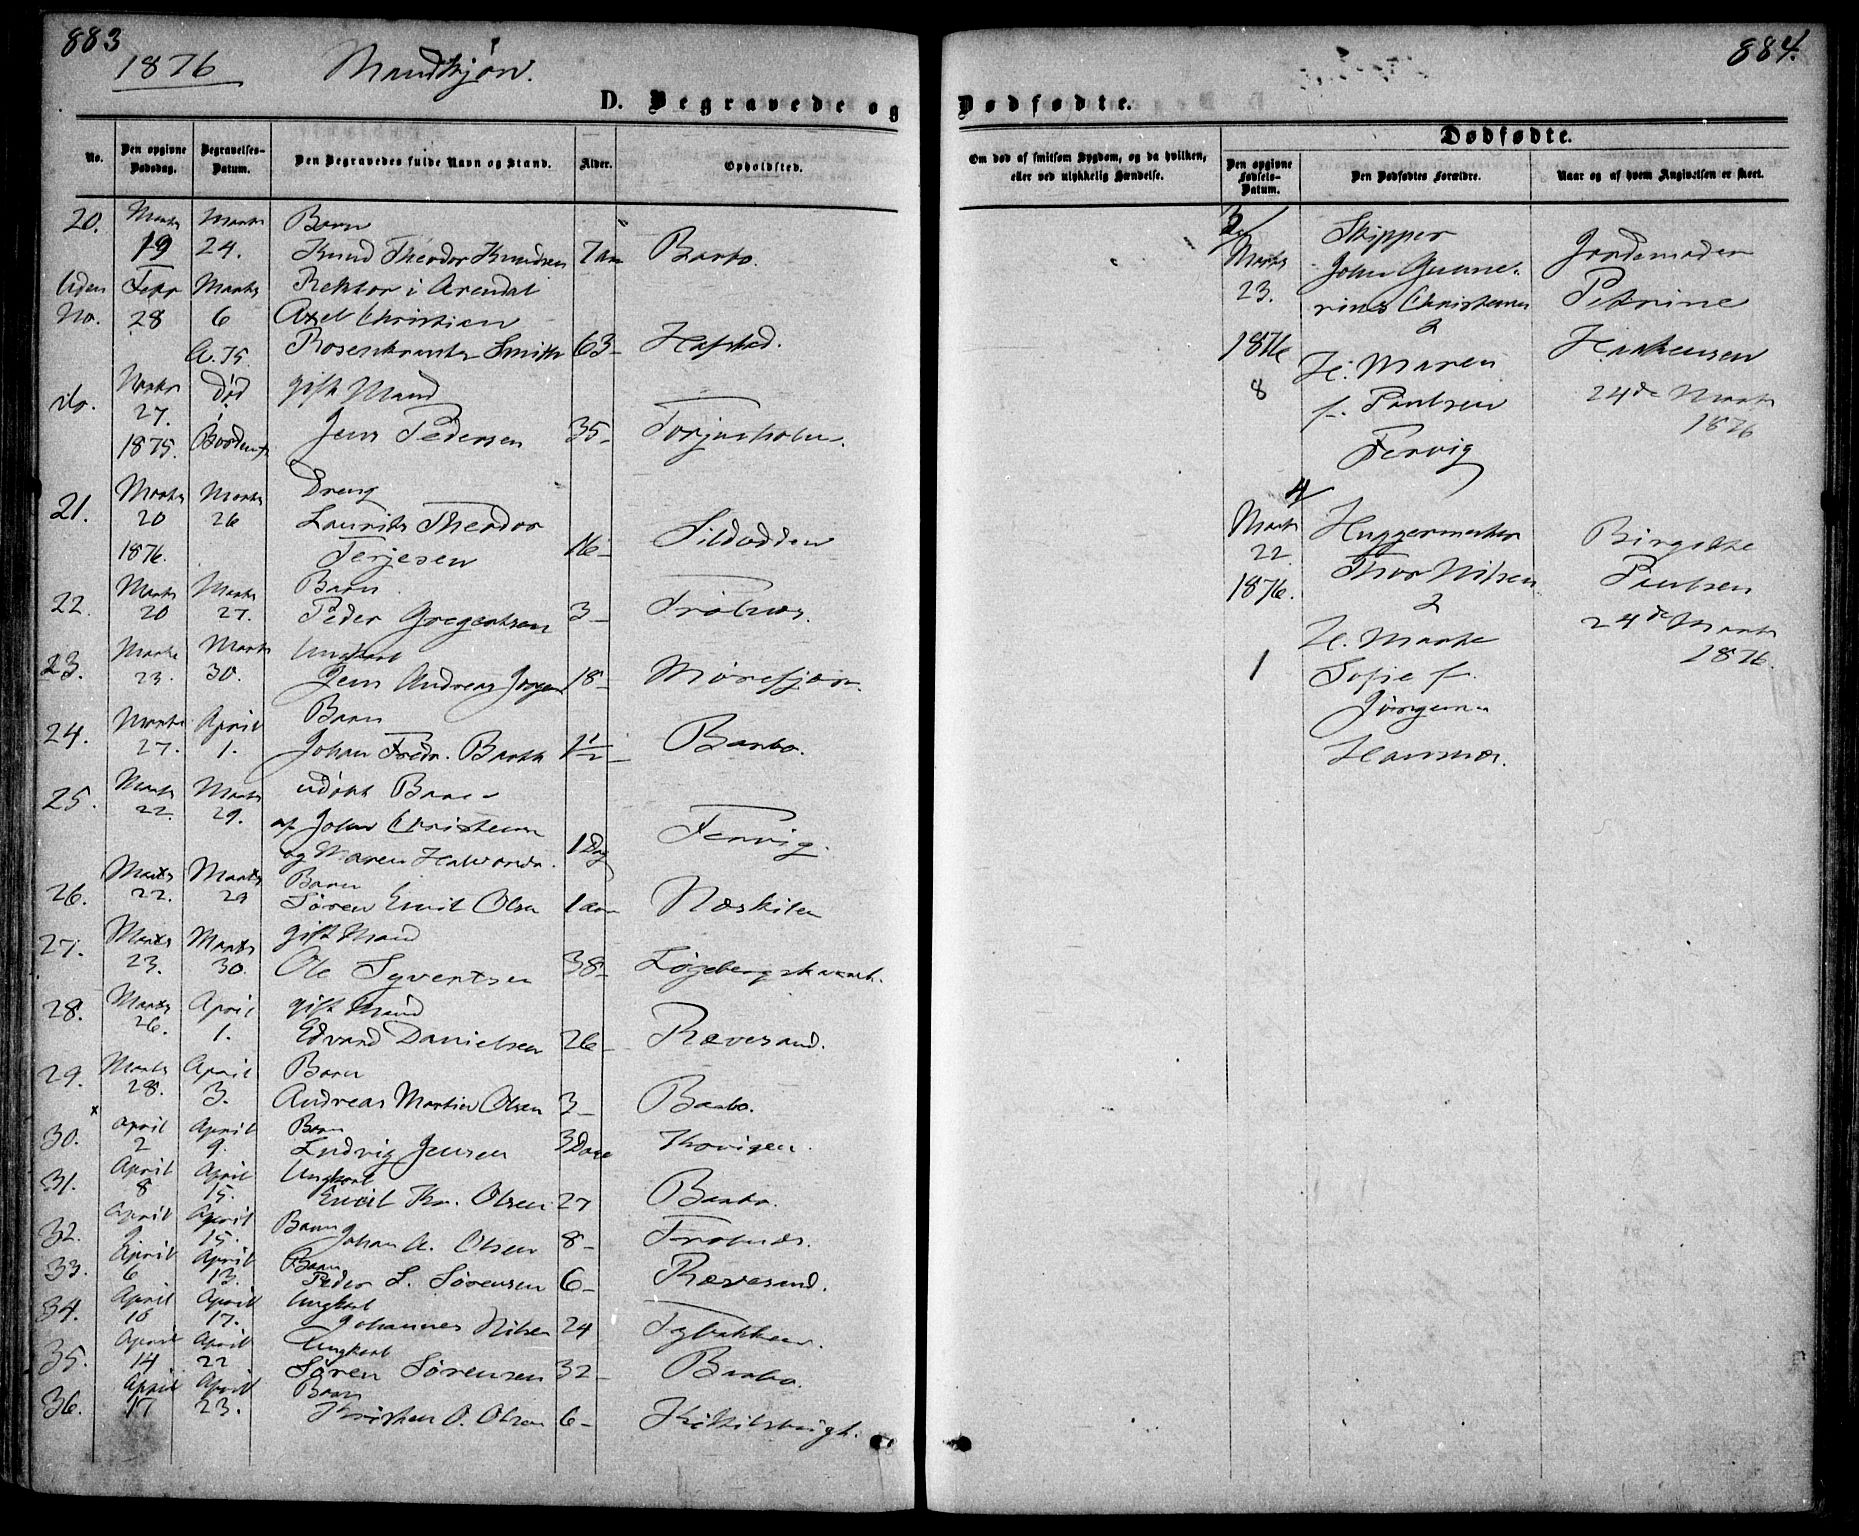 883
1876 Mandkjøn.
D. Begravede og
No. Den opgivne Dødsdag. Begravelses-Datum. Den Begravedes fulde Navn og Stand. Alder. Opholdssted.
20. Marts 19 Marts 24. Barn
Knud Theodor Knudsen 7 aar Barbo.
Uden No. Febr 28 Marts 6 Rektor i Arendal
Axel Christian
A. 75. Rosenkrantz Smith 63 - Hafstad.
do. Marts 27. 1875. Død gift Mand
Jens Pedersen 35 - Torjusholm.
21. Marts 20 1876. Marts 26 Dreng
Laurits Theodor
Terjesen 16 - Sildodden
22. Marts 20 Marts 27. Barn
Peder Gregertsen 3 - Frolnes.
23. Marts 23. Marts 30. Ungkarl
Jens Andreas 18 - Mørefjær.
24. Marts 27. April 1. Barn
Johan Fredr. Barth 1½ - Barbo.
25. Marts 22. Marts 29. udøbt Barn
af John Christensen
og Maren Halvorsdr. 1 Dag Fervig.
26. Marts 22. Marts 29 Barn
Søren Emil Olsen 1 aar Næskilen
27. Marts 23. Marts 30. gift Mand
Ole Syvertsen 38 -
28. Marts 26. April 1. gift Mand
Edvard Danielsen 26 - Rævesand.
29. Marts 28. April 3. Barn
Andreas Martin Olsen 3 - Barbo.
x
30. April 2 April 9. Barn
Ludvig Jensen 3 Dage
31. April 8 April 15. Ungkarl
Emil Kr. Olsen 27 Barbo.
32. April 9 April 15. Barn
Johan A. Olsen 8 - Frolnes.
33. April 6 April 13. Barn
Peder L. Sørensen 6 - Rævesand.
34. April 10 April 17. Ungkarl
Johannes Nilsen 24 Tybakken.
35. April 14 April 22 Ungkarl
Søren Sørensen 32 - Barbo.
36. April 17 April 23. Barn
Kristen O. Olsen 6 -
884.
Dødfødte.
Om død af smitsom Sygdom, og da hvilken, eller ved ulykkelig Hændelse.
Dødfødte.
Den opgivne Fødsels-Datum. Den Dødfødtes Forældre. Naar og af hvem Angivelsen er skeet.
3/
Marts
23.
1876
8
Skipper
John Gunne-
rius Christensen
&
H. Maren
f. Paulsen
Fervig
Jordemoder
Petrine
Haakensen
24de Marts
1876
4/
Marts
22.
1876.
1
Huggermester
Thor Nilsen
&
H. Marte
Sofie f.
Jørgens
Birgitte
Paulsen
24de Marts
1876.